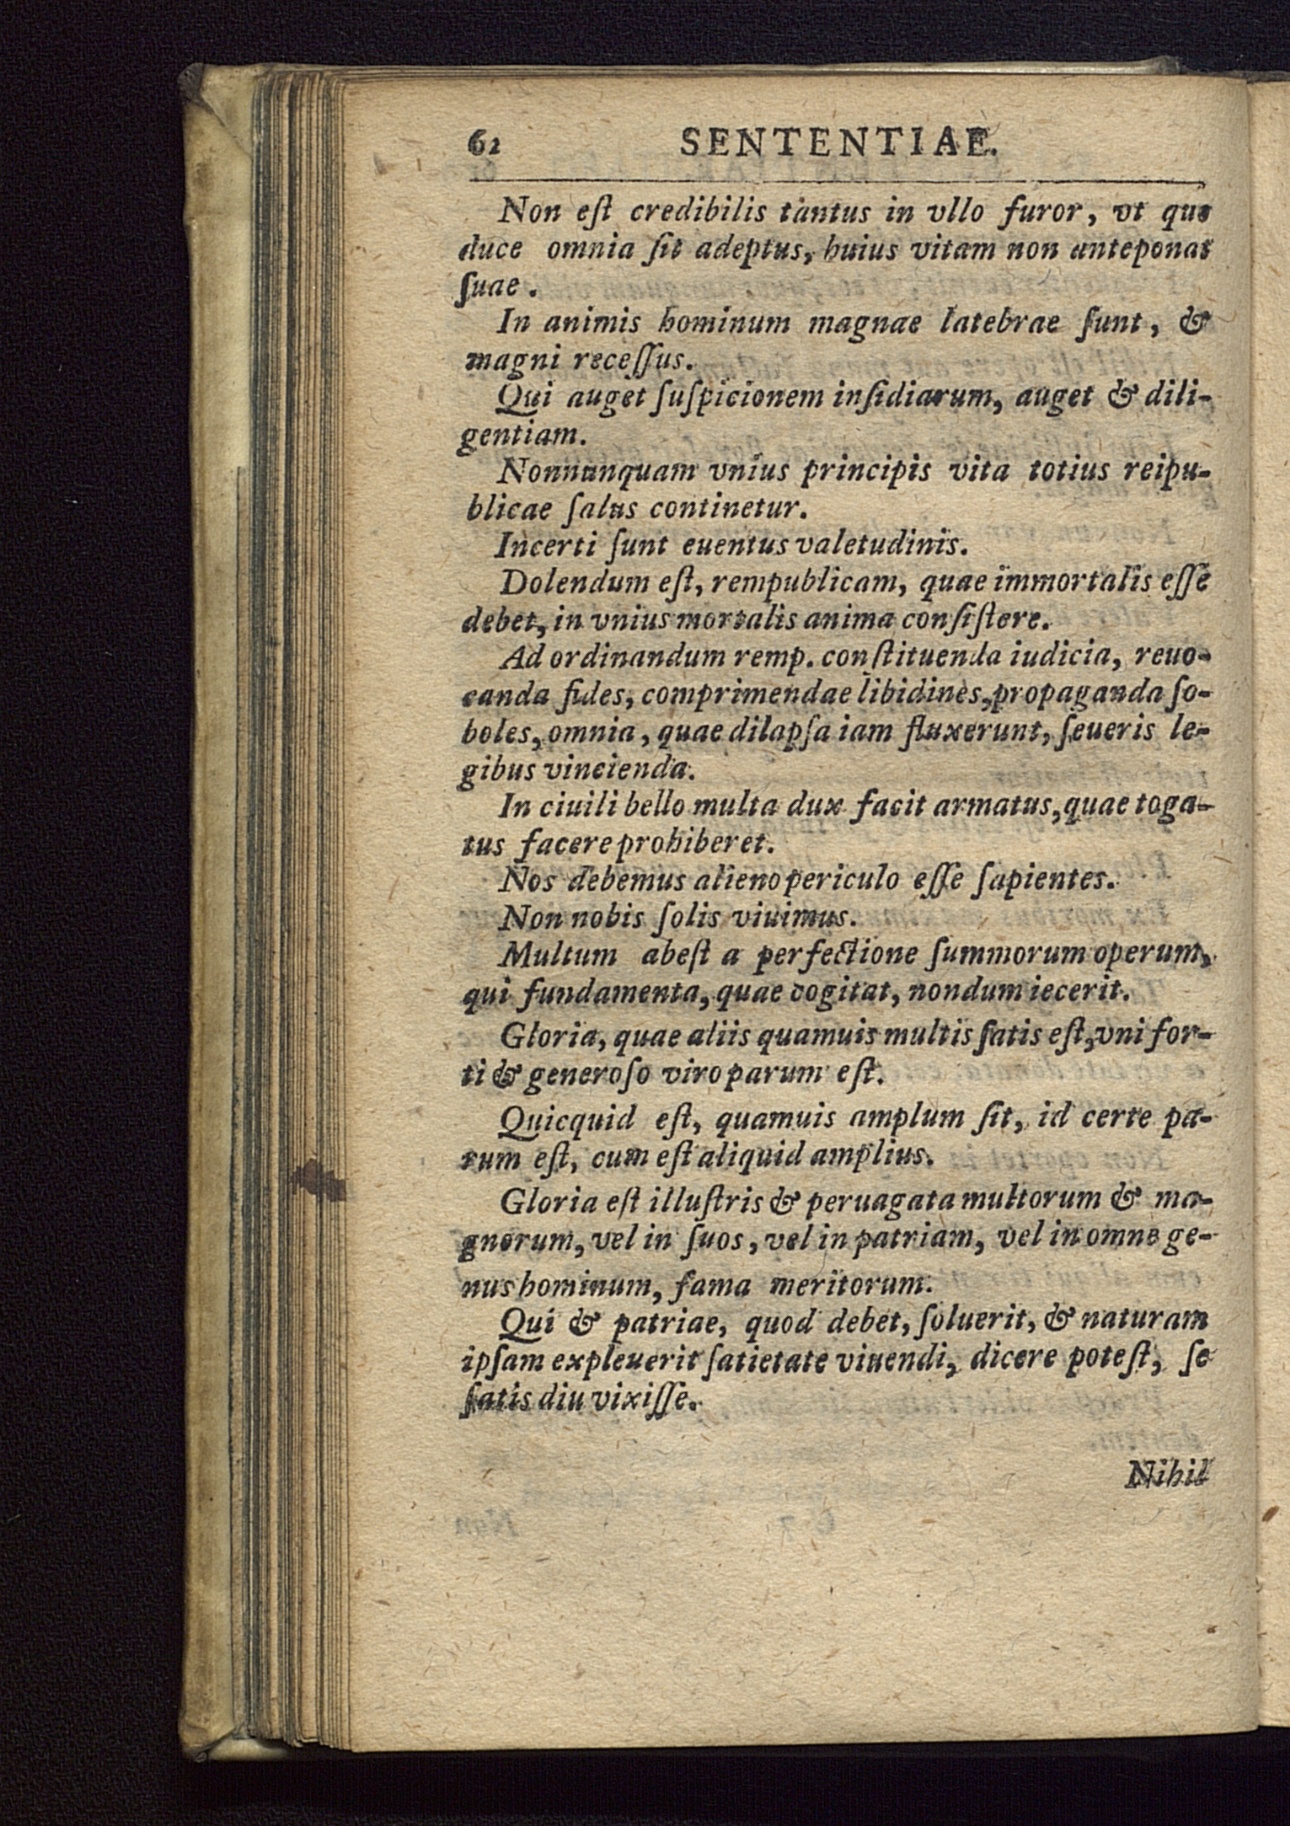 62 SENTENTIAE.
Non eſt credibilis tantus in vllo furor, vt quo
duce omnia ſit adeptus, huius vitam non anteponat
ſuae.
In animis hominum magnae latebrae ſunt, &
magni receſſus.
Qui auget ſuſpicionem inſidiarum, auget & dili-
gentiam.
Nonnunquam vnius principis vita totius reipu-
blicae ſalus continetur.
Incerti ſunt euentus valetudinis.
Dolendum eſt, rempublicam, quae immortalis eſſe
debet, in vnius mortalis anima conſiſtere.
Ad ordinandum remp. conſtituenda iudicia, reuo-
canda fides, comprimendae libidines, propaganda ſo-
boles, omnia, quae dilapſa iam fluxerunt, ſeueris le-
gibus vincienda.
In ciuili bello multa dux facit armatus, quae toga-
tus facere prohiberet.
Nos debemus alieno periculo eſſe ſapientes.
Non nobis ſolis viuimus.
Multum abeſt a perfectione ſummorum operum,
qui fundamenta, quae cogitat, nondum iecerit.
Gloria, quae aliis quamuis multis ſatis eſt, vni for-
ti & generoſo viro parum eſt.
Quicquid eſt, quamuis amplum ſit, id certe pa-
rum eſt, cum eſt aliquid amplius.
Gloria eſt illuſtris & peruagata multorum & ma-
gnorum, vel in ſuos, vel in patriam, vel in omne ge-
nus hominum, fama meritorum.
Qui & patriae, quod debet, ſoluerit, & naturam
ipſam expleuerit ſatietate viuendi, dicere poteſt, ſe
ſatis diu vixiſſe.
Nihil